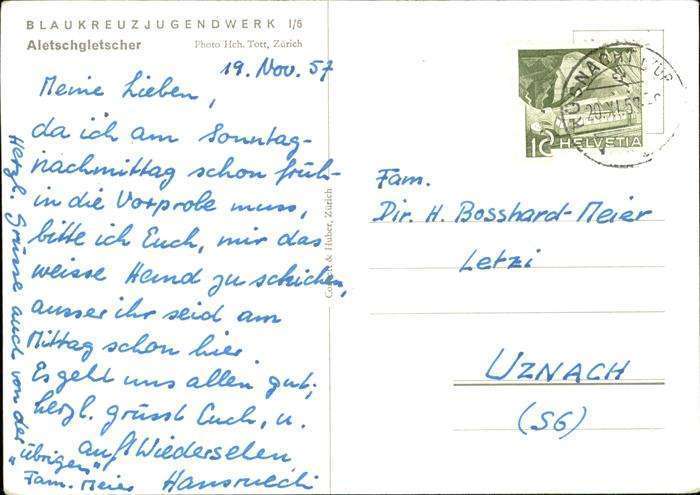 BLAUKREUZJUGENDWERK I/6
Aletschgletscher
Photo Hch. Tott, Zürich
19. Nov. 57
Meine Lieben,
da ich am Sonntag-
nachmittag schon früh-
in die Vorprobe muss,
bitte ich Euch, mir das
weisse Hemd zu schicken,
ausser ihr seid am
Mittag schon hier
Es geht uns allen gut;
herzl. grüsst Euch, u.
auf Wiedersehen
Hansruedi
Herzl. Grüsse auch von der
"übrigen"
Fam. Meier
& Huber, Zürich
HELVETIA
Fam.
Dir. H. Bosshard-Meier
Letzi
UZNACH
(SG)